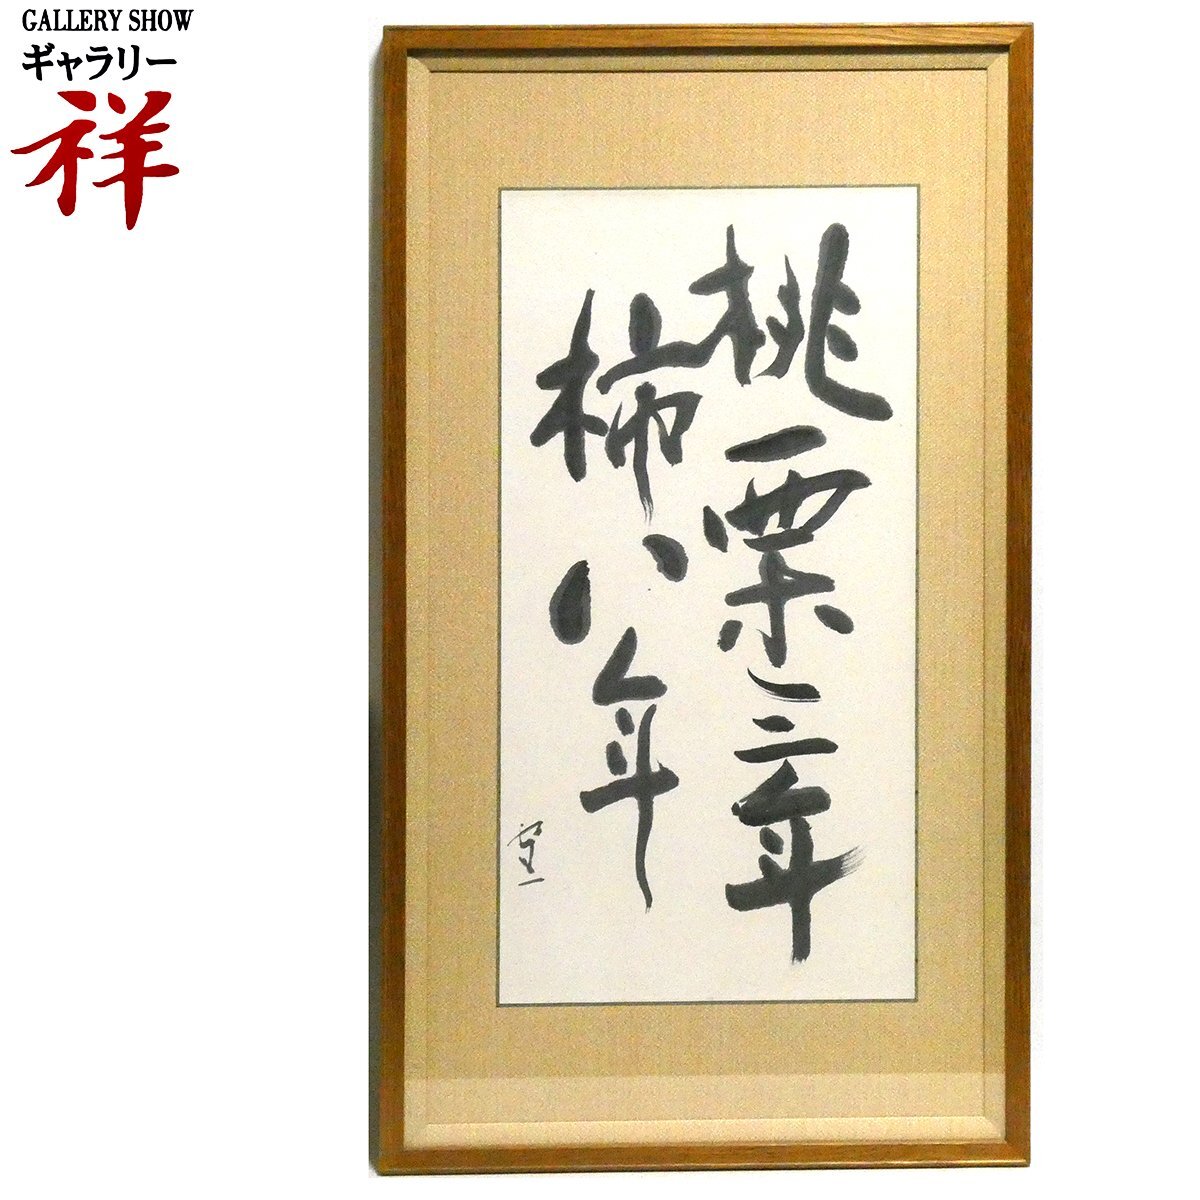 GALLERY SHOW
ギャラリー
祥
桃栗三年
柿八年